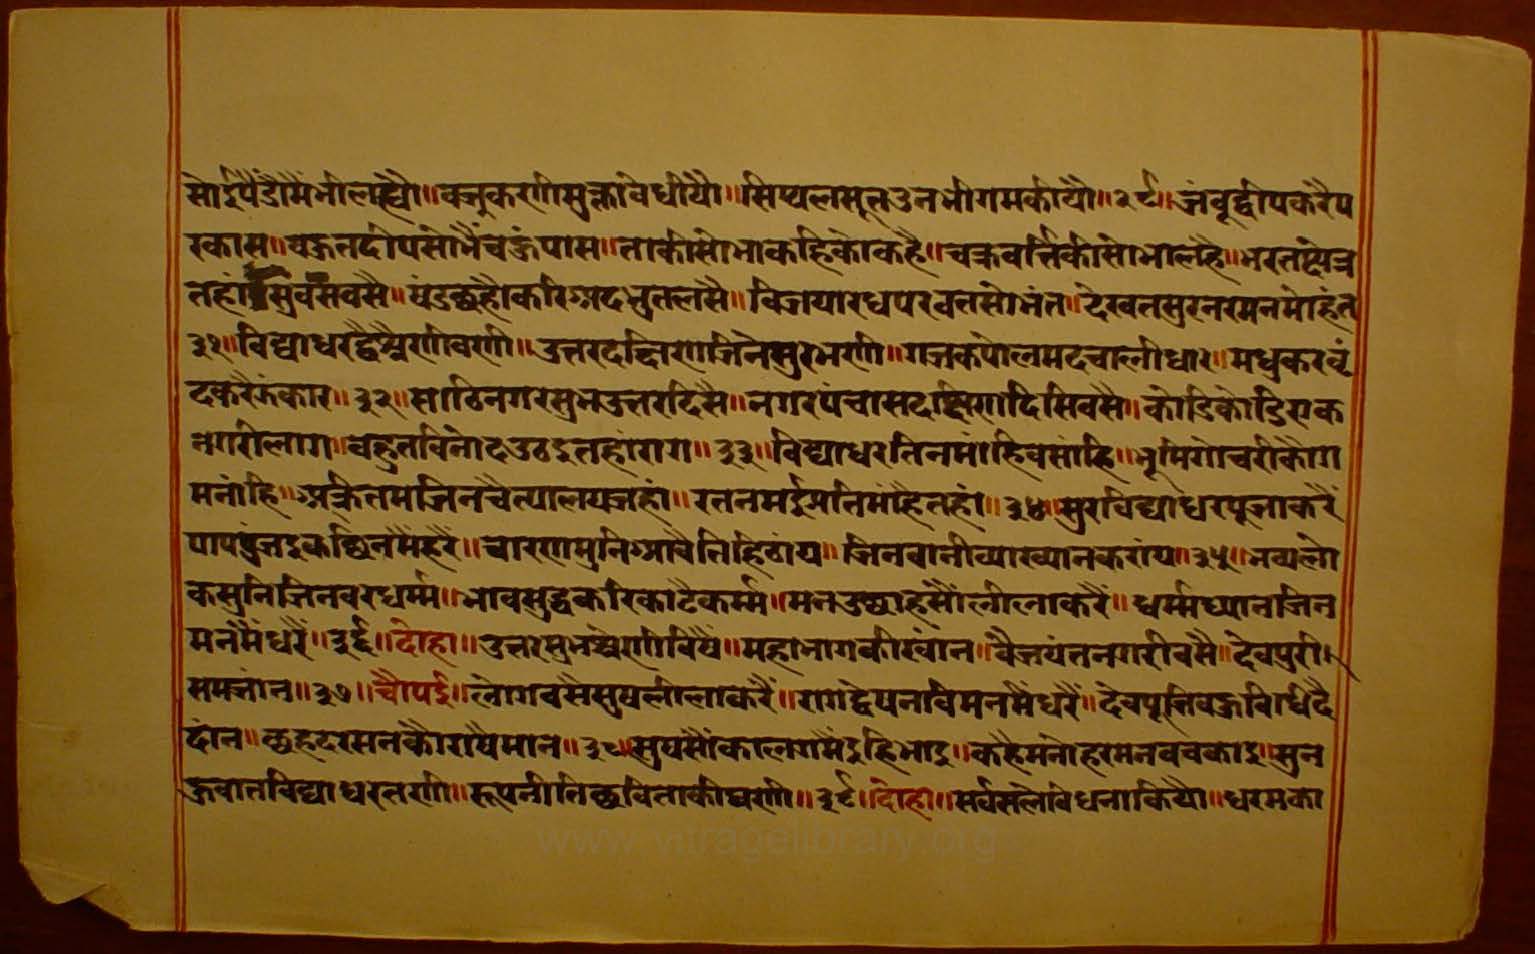 सोईपैंडौमैंभीलह्यौ॥वज्रकरणीसुक्लावेधीयौ॥सिष्यलसूलउनभीगमकीयौ॥२९॥जंबूद्वीपकरैप
रकास॥वज्रनदीपसोभैंचऊंपास॥ताकीसोभाकहिकोकहै॥चक्रवर्त्तिकीसोभालहै॥भरतष्येत्र
तहांसुवसवसै॥षंडछहौकरिअदभुतलसै॥विजयारधपरवतसोभंत॥देखतसुरनरमनमोहंत
३१॥विद्याधरद्वैश्रैणीवरणी॥उत्तरदक्षिणजिनेसुरभरणी॥गजकपोलमदचालीधार॥मधुकरवृं
दकरैझंकार॥३२॥साठिनगरसुभउत्तरदिसै॥नगरपंचासदक्षिणदिसिवसै॥कोडिकोडिएक
नगरीलाग॥वहुतविनोदउठइतहांराग॥३३॥विद्याधरतिनमांहिवसांहि॥भूमिगोचरीकौग
मनांहि॥अक्रितमजिनचैत्यालयजहां॥रतनमईप्रतिमांहैतहां॥३४॥सुरविद्याधरपूजाकरैं
पापपुंजइकछिनमैंहरैं॥चारणमुनिआवैतिहिठांय॥जिनवानीव्याख्यानकरांय॥३५॥भव्यलो
कसुनिजिनवरधर्म्म॥भावसुद्धकरिकाटैकर्म्म॥मनउछाहसौंलीलाकरैं॥धर्म्मध्यानजिन
मनमैंधरैं॥३६॥दोहा॥उत्तरसुभश्रेणीविषैं॥महाभागकीखांन॥वैजयंतनगरीवसै॥देवपुरी
समजांन॥३७॥चौपई॥लोगवसैसुषलीलाकरैं॥रागद्वेषनविमनमैंधरैं॥देवपूजिवऊविधिदै
दांन॥छहदरसनकौराषैमान॥३८॥सुषसौंकालगमैंइहिभाइ॥कहैमनोहरमनवचकाइ॥सुन
ऊवातविद्याधरतणी॥रूपनीतिछविताकीघणी॥३९॥दोहा॥सर्वसलोवधनाकियौ॥धरमको
www.vitragelibrary.org